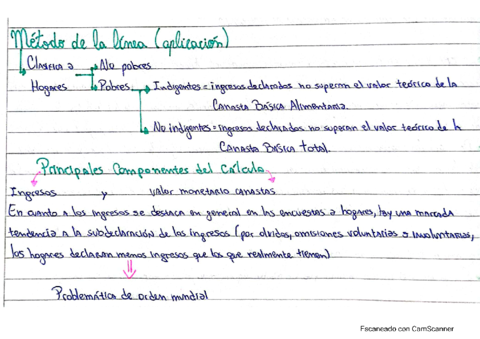 Método de la línea (aplicación)
Clasifica a → No pobres
Hogares → Pobres → Indigentes = ingresos declarados no superan el valor teórico de la
Canasta Básica Alimentaria.
No indigentes = ingresos declarados no superan el valor teórico de la
Canasta Básica total.
Principales componentes del cálculo
Ingresos y valor monetario canastas
En cuanto a los ingresos se destaca en general en las encuestas a hogares, hay una marcada
tendencia a la subdeclaración de los ingresos (por olvidos, omisiones voluntarias o involuntarias,
los hogares declaran menos ingresos que los que realmente tienen)
Problemática de orden mundial
Escaneado con CamScanner